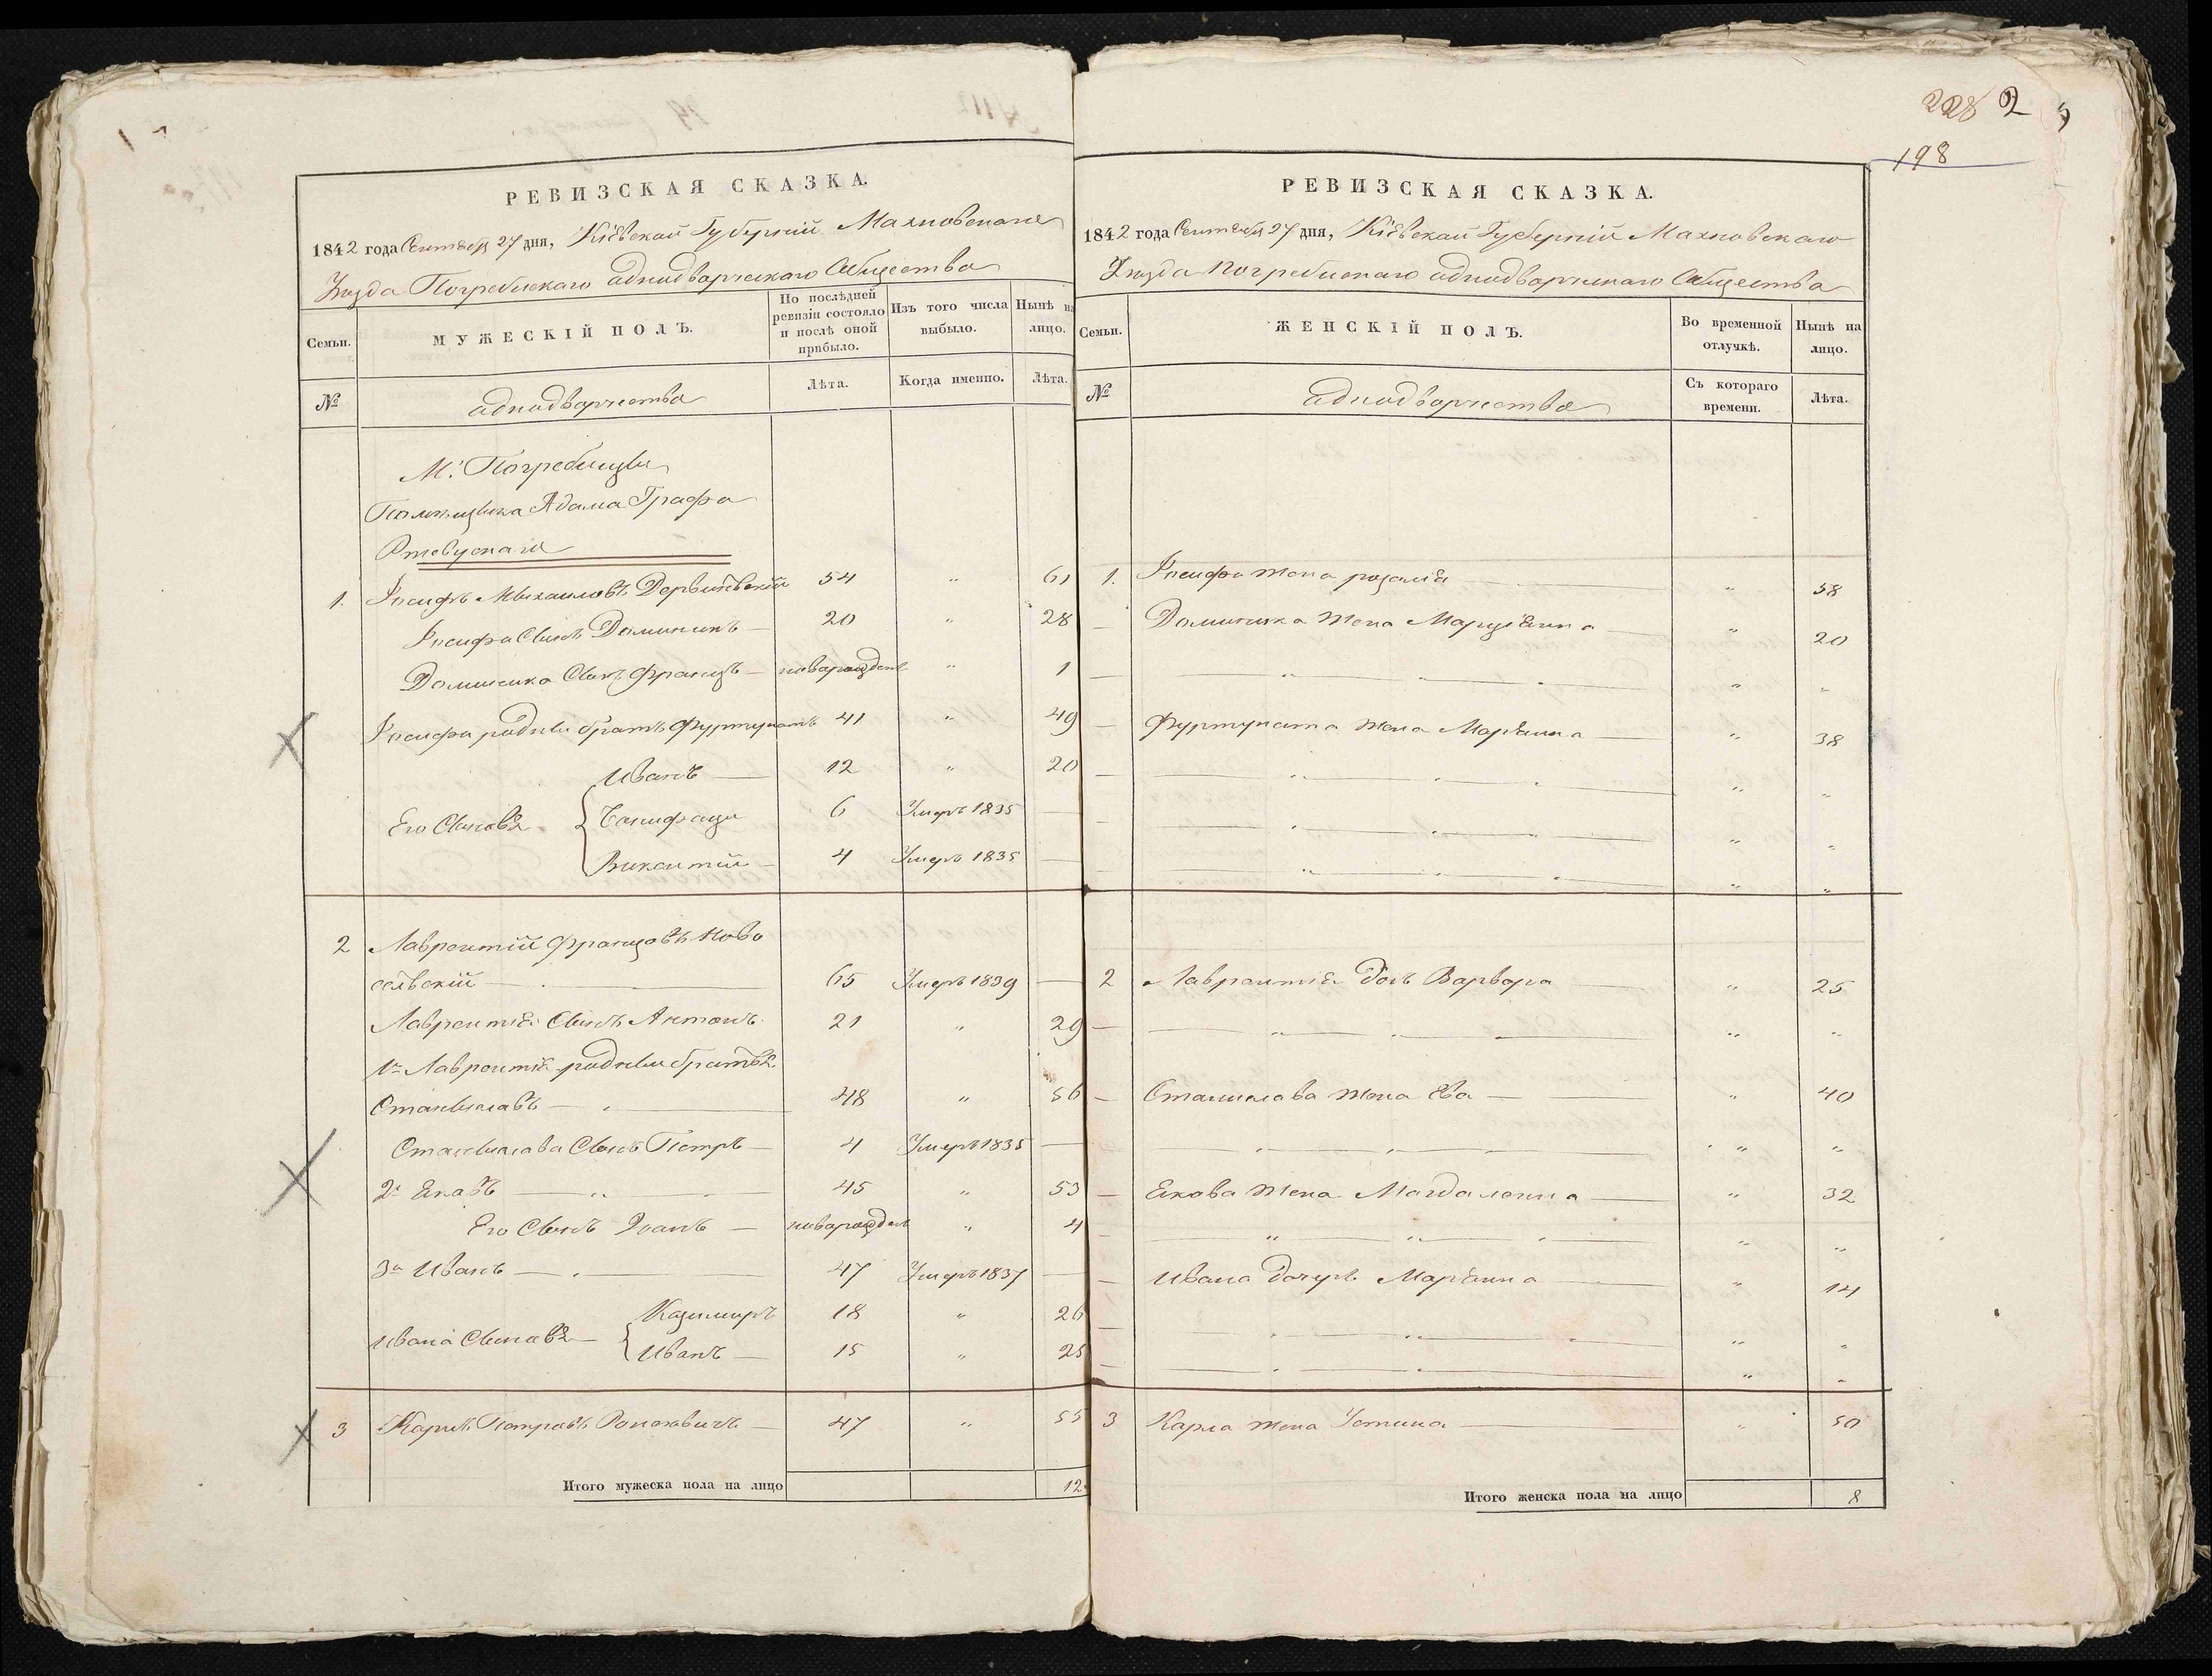 228 2
198
РЕВИЗСКАЯ СКАЗКА.
1842 года Сентября 27 дня, Кіевской Губерніи Махновскаго
Уезда Погребискаго однодворческаго Общества
Семьи.
МУЖЕСКІЙ ПОЛЪ.
По послѣдней ревизіи состояло и послѣ оной прибыло.
Изъ того числа выбыло.
Нынѣ на лицо.
№
однодворчества
Лѣта.
Когда именно.
Лѣта.
М: Погребищи
Помещика Адама Графа
Ржевускаго
1. Іосифъ Михаиловъ 54 " 61
Іосифа Сынъ Доминикъ — 20 " 28
Доминика Сынъ Францъ — новорожден " 1
Іосифа родный братъ Фуртунатъ 41 " 49
Его Сыновя
Иванъ — 12 " 20
Бонифаци 6 Умеръ 1835 —
Викентій — 4 Умеръ 1835 —
2 Лаврентій Францовъ Ново
селвскій — 65 Умеръ 1839 —
Лаврентія Сынъ Антонъ 21 " 29
1й Лаврентія родный братья
Станиславъ — 48 " 56
Станислава Сынъ Петръ — 4 Умеръ 1835 —
2й Якавъ — 45 " 53
Его Сынъ Іоанъ — новорожден " 4
3й Иванъ — 47 Умеръ 1837 —
Ивана Сыновя —
Казимиръ 18 " 26
Иванъ — 15 " 25
3 Карлъ Петровъ 47 " 55
Итого мужеска пола на лицо 12
РЕВИЗСКАЯ СКАЗКА.
1842 года Сентября 27 дня, Кіевской Губерніи Махновскаго
Уезда Погребискаго однодворческаго Общества
Семьи.
ЖЕНСКІЙ ПОЛЪ.
Во временной отлучкѣ.
Нынѣ на лицо.
№
однодворчества
Съ котораго времени.
Лѣта.
1. Іосифа жена розалія — " 58
— Доминика жена Марціянна — " 20
— " "
— Фуртуната жена Маріянна — " 38
— " "
— " "
— " "
2 Лаврентія дочь Варвара — " 25
— " "
— Станислава жена Ева — " 40
— " "
— Якова жена Магдаленна — " 32
— " "
— Ивана дочерь Маріянна — " 14
— " "
— " "
3 Карла жена Устина — " 50
Итого женска пола на лицо 8